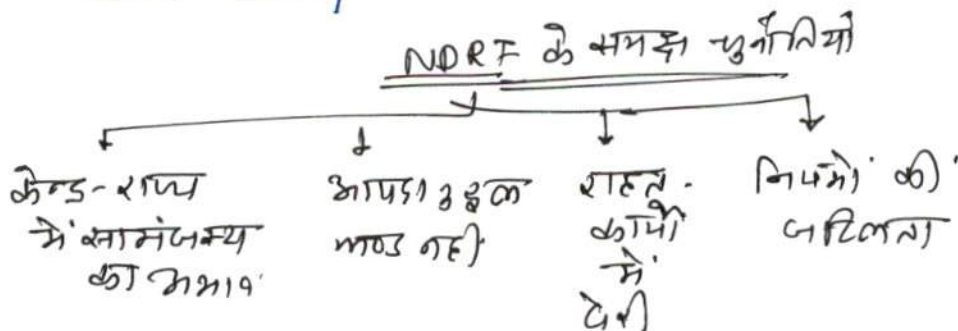 NDRF के समक्ष चुनौतियाँ
केन्द्र-राज्य
में सामंजस्य
का अभाव
नहीं
राहत
कार्यों
में
देरी
नियमों की
जटिलता